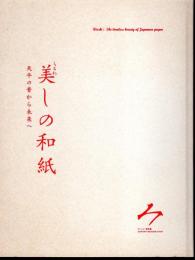 Washi : The timeless beauty of Japanese paper
美しの和紙
天平の昔から未来へ